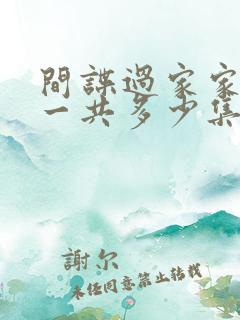 間諜過家家
一共多少集
謝尔
未經同意禁止转載